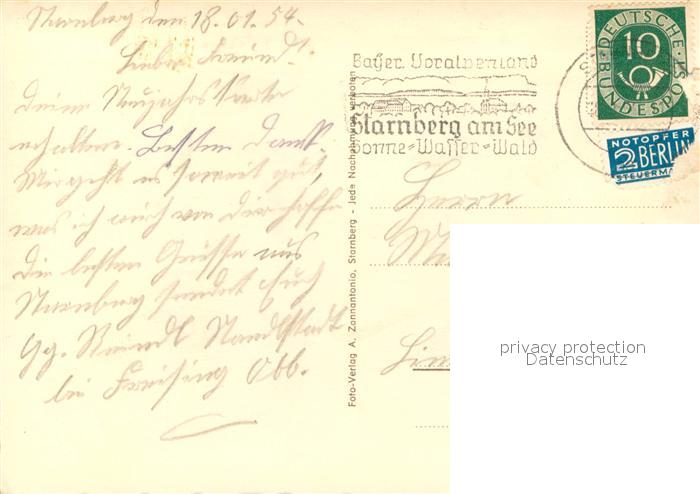 Starnberg den 18.01.54.
Lieber Freund!
Deine Neujahrskarte
erhalten. Besten Dank.
Mir geht es soweit gut,
was ich auch von Dir hoffe
Die besten Grüsse aus
Starnberg sendet Euch
Gg. Reindl Nandlstadt
bei Freising Obb.
Foto-Verlag A. Zonnantonio, Starnberg - Jede Nachahmung verboten
Bayer. Voralpenland
Starnberg am See
Sonne-Wasser-Wald
DEUTSCHE
BUNDESPOST
10
NOTOPFER
2 BERLIN
STEUERMA
Herrn
privacy protection
Datenschutz